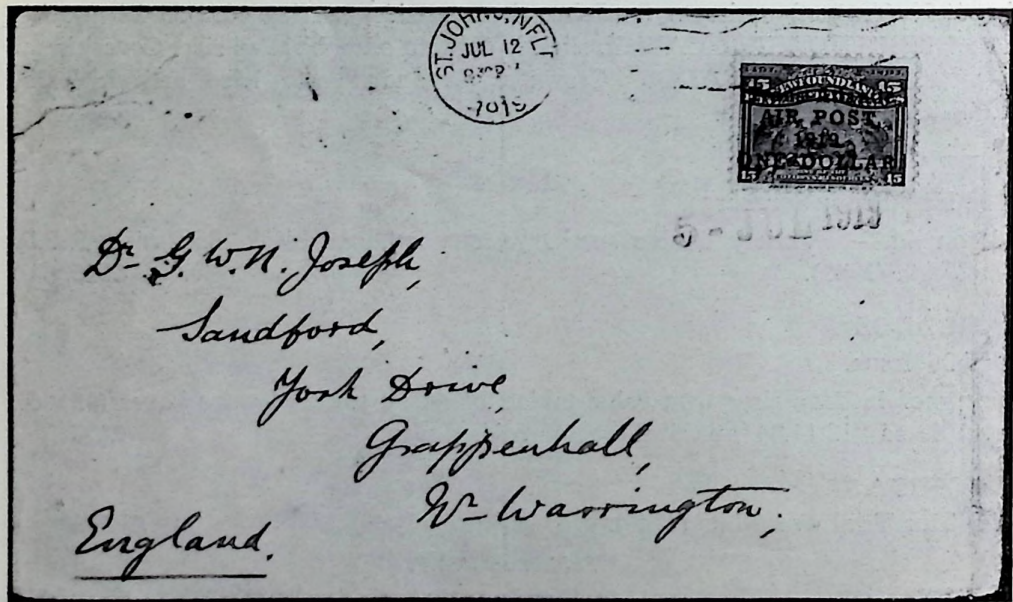 ST. JOHN'S, NFLD
JUL 12
1919
15 NEWFOUNDLAND 15
AIR POST
1919
ONE DOLLAR
15 15
1919
Dr. G. W. N. Joseph,
Sandford,
York Drive,
Grappenhall,
Nr. Warrington,
England.